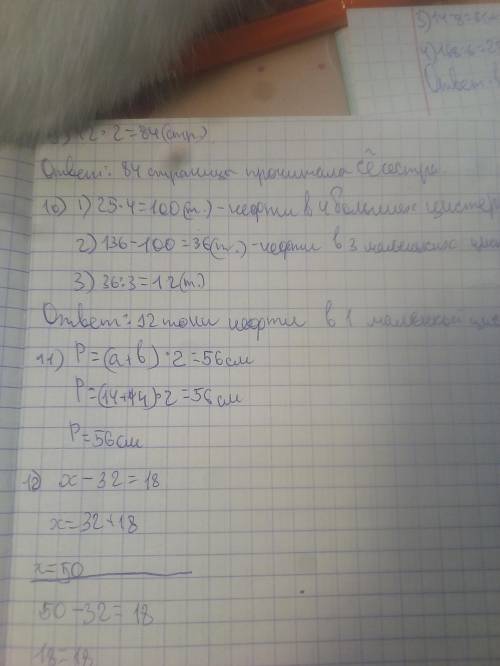 5) 14-8=6(
3) 42·2=84(стр.)
Ответ: 84 страницы прочитала её сестра
10) 1) 25·4=100(т.)-нефти в 4 больших цистер
2) 136-100=36(т.)-нефти в 3 маленьких цис
3) 36:3=12(т.)
Ответ: 12 тонн нефти в 1 маленькой цис
11) P=(a+b)·2=56см
P=(14+14)·2=56см
P=56см
12) x-32=18
x=32+18
x=50
50-32=18
18=18
Ответ: